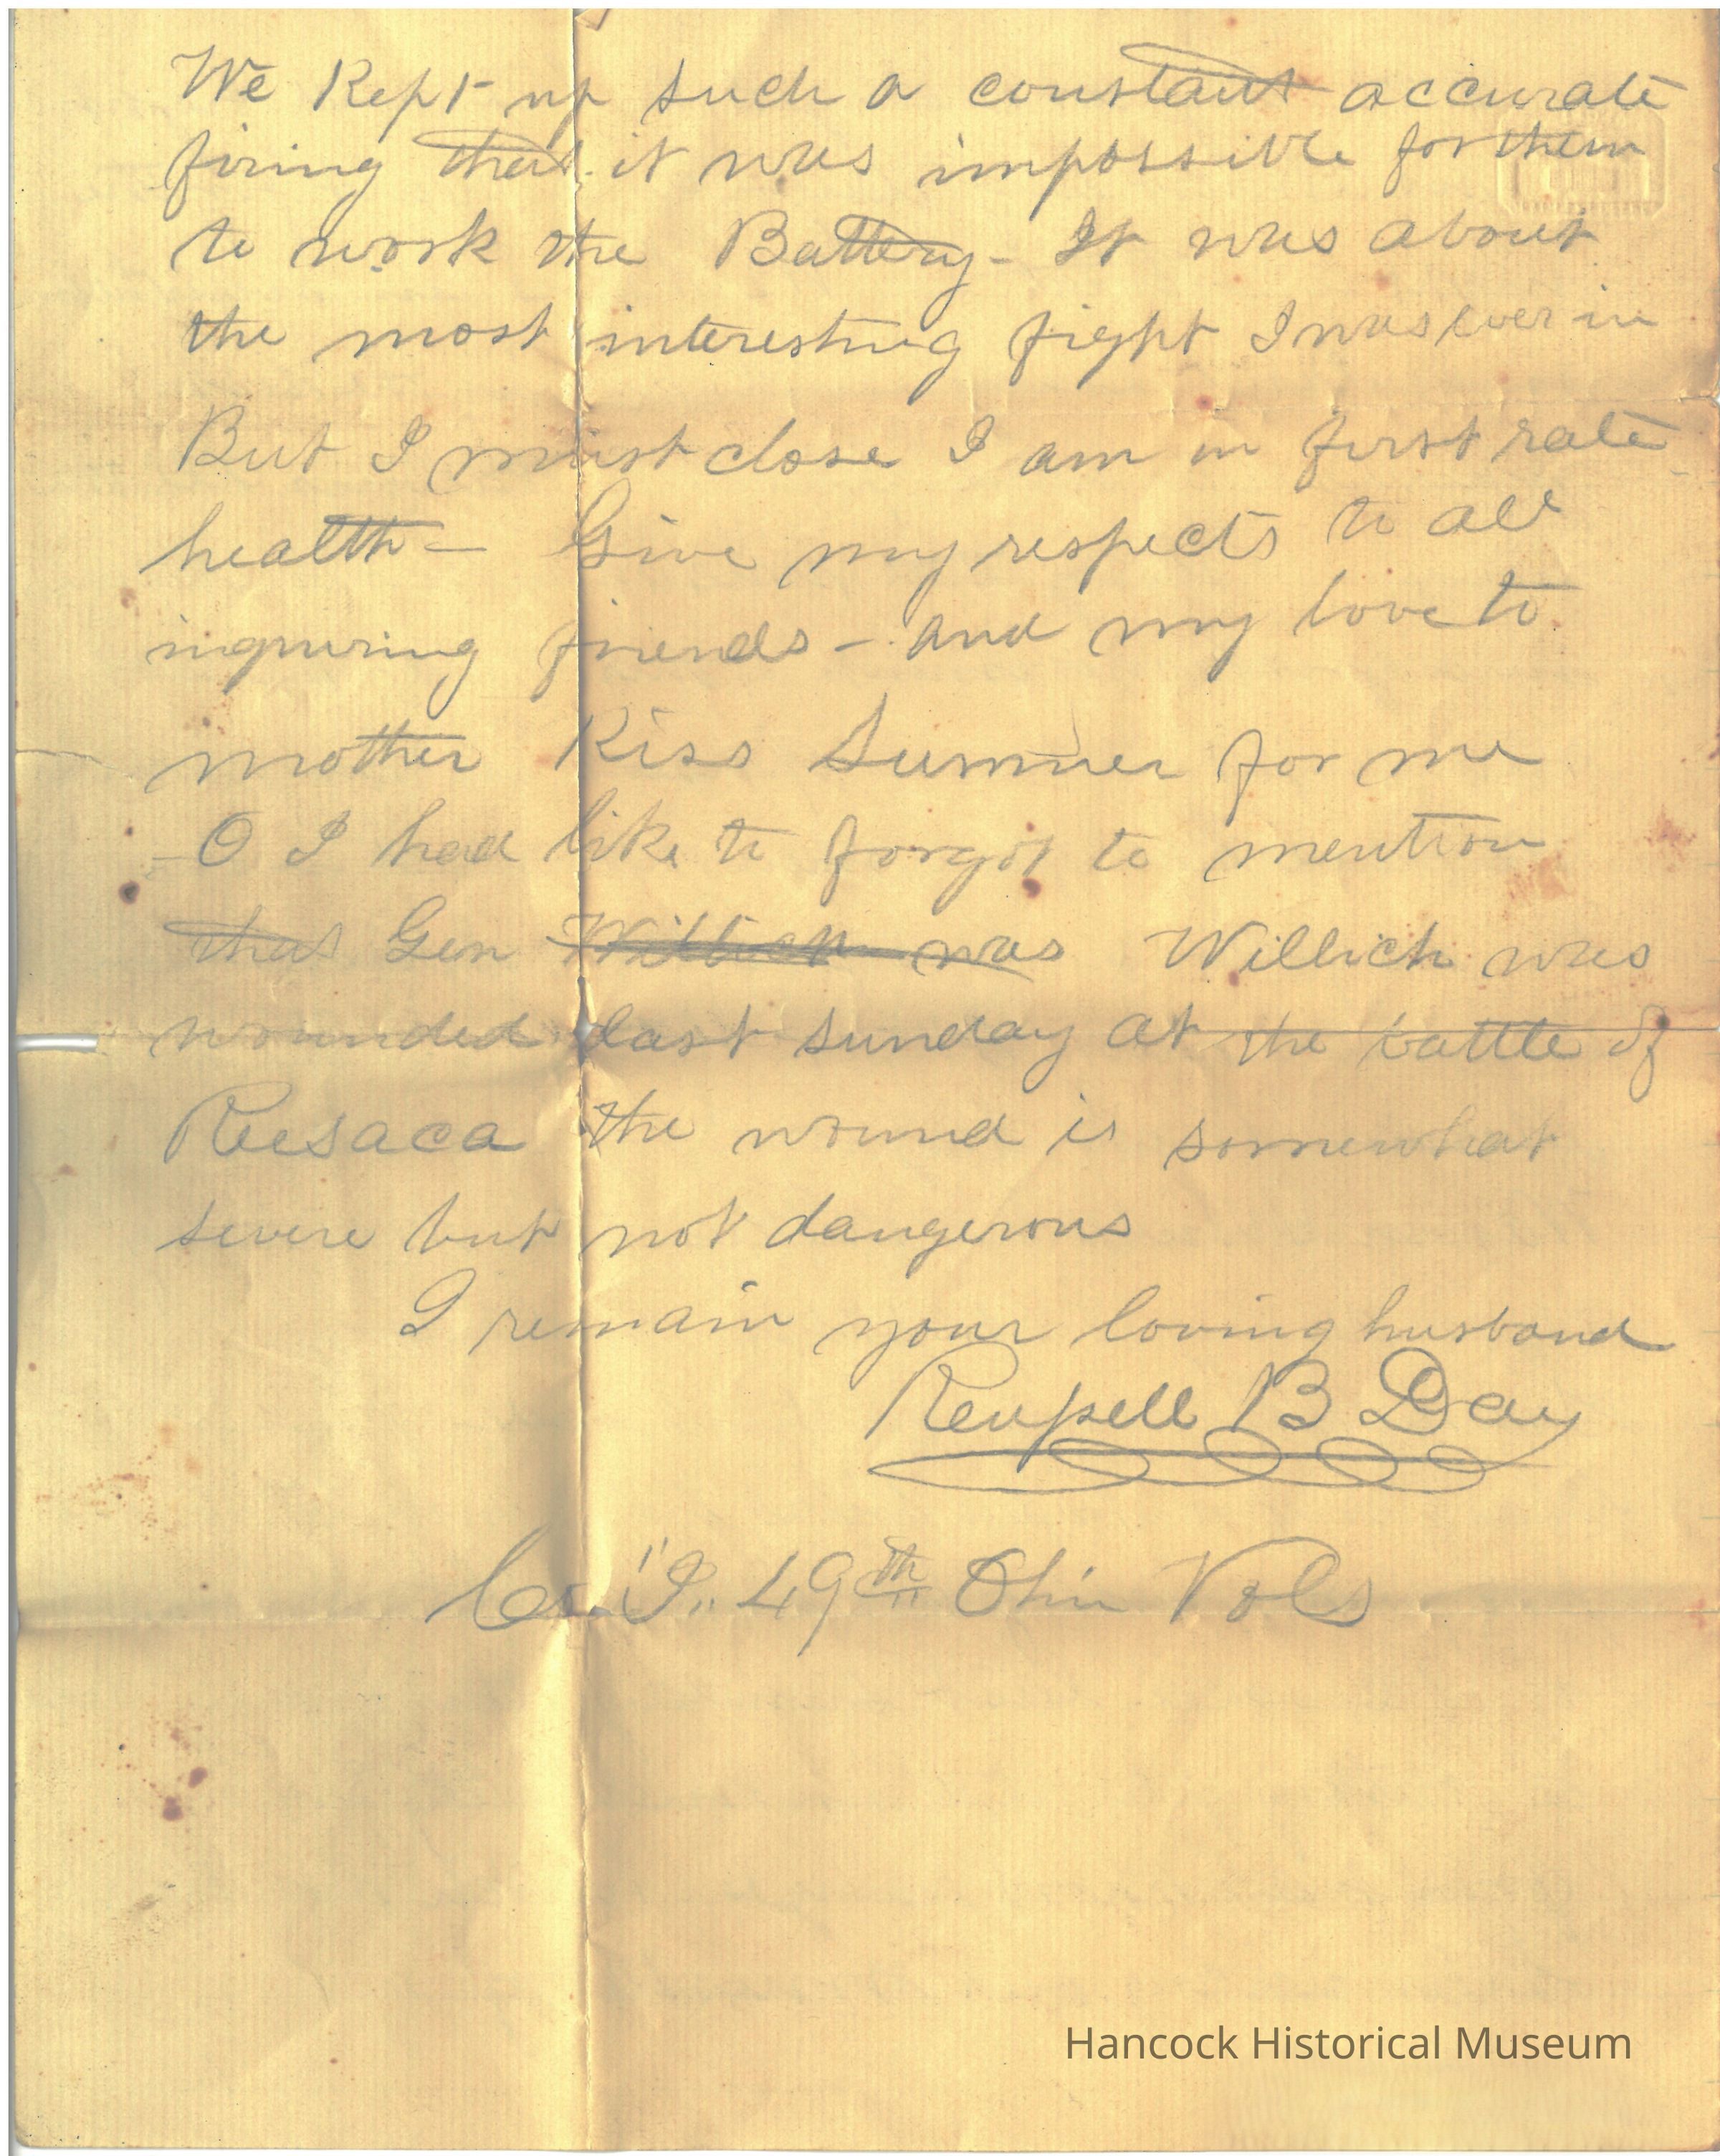 We Kept up such a constant accurate
firing that it was impossible for them
to work the Battery - It was about
the most interesting fight I was ever in
But I must close I am in first rate
health - Give my respects to all
inquiring friends - and my love to
mother Kiss Sumner for me
- O I had like to forgot to mention
that Gen Willich was Willich was
wounded last sunday at the battle of
Reesaca the wound is somewhat
severe but not dangerous
I remain your loving husband
Russell B Day
Co. "I" 49th Ohio Vols
Hancock Historical Museum